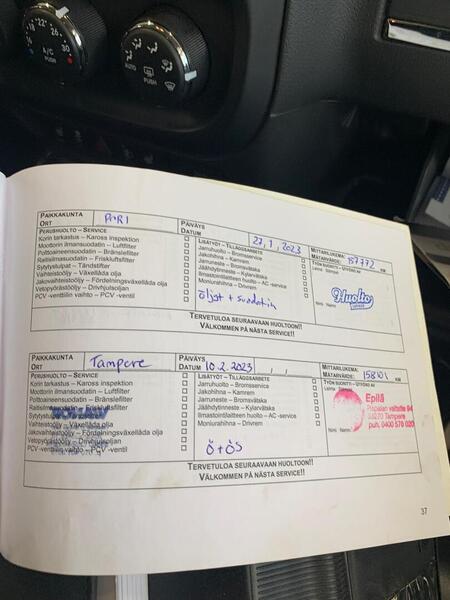 22° 26
18 30
A/C
PUSH
AUTO
PUSH
PAIKKAKUNTA
ORT
PORI
PÄIVÄYS
DATUM
27.1.2023
MITTARILUKEMA:
MÄTARVÄRDE: 157772 KM
PERUSHUOLTO – SERVICE
Korin tarkastus – Kaross inspektion
Moottorin ilmansuodatin – Luftfilter
Polttoaineensuodatin – Bränslefilter
Raitisilmasuodatin – Friskluftsfilter
Sytytystulpat – Tändstifter
Vaihteistoöljy – Växellåda olja
Jakovaihteistoöljy – Fördelningsväxellåda olja
Vetopyörästööljy – Drivhjulsoljan
PCV -venttiilin vaihto – PCV -ventil
LISÄTYÖT – TILLÄGGSARBETE
Jarruhuolto – Bromsservice
Jakohihna – Kamrem
Jarruneste – Bromsvätska
Jäähdytinneste – Kylarvätska
Ilmastointilaitteen huolto – AC -service
Moniurahihna – Drivrem
öljyt + suodatin
TYÖN SUORITTI – UTFÖRD AV
Leima Stämpel
Huolto
Nimi Namn
TERVETULOA SEURAAVAAN HUOLTOON!!
VÄLKOMMEN PÅ NÄSTA SERVICE!!
PAIKKAKUNTA
ORT
Tampere
PÄIVÄYS
DATUM
10.2.2023
MITTARILUKEMA:
MÄTARVÄRDE: 158101 KM
PERUSHUOLTO – SERVICE
Korin tarkastus – Kaross inspektion
Moottorin ilmansuodatin – Luftfilter
Polttoaineensuodatin – Bränslefilter
Raitisilmasuodatin – Friskluftsfilter
Sytytystulpat – Tändstifter
Vaihteistoöljy – Växellåda olja
Jakovaihteistoöljy – Fördelningsväxellåda olja
Vetopyörästööljy – Drivhjulsoljan
PCV -venttiilin vaihto – PCV -ventil
LISÄTYÖT – TILLÄGGSARBETE
Jarruhuolto – Bromsservice
Jakohihna – Kamrem
Jarruneste – Bromsvätska
Jäähdytinneste – Kylarvätska
Ilmastointilaitteen huolto – AC -service
Moniurahihna – Drivrem
Ö + ÖS
TYÖN SUORITTI – UTFÖRD AV
Leima Stämpel
Epilä
33270 Tampere
puh. 0400 578 020
Nimi Namn
TERVETULOA SEURAAVAAN HUOLTOON!!
VÄLKOMMEN PÅ NÄSTA SERVICE!!
37